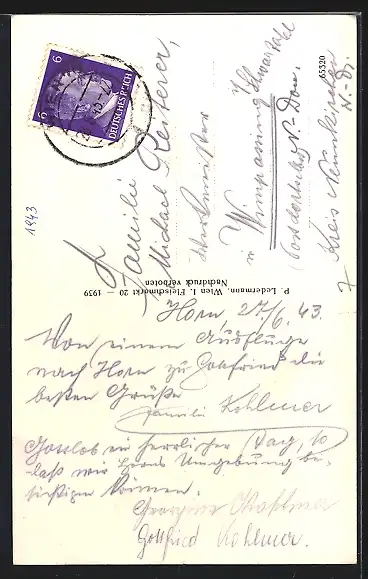 Horn, 27./6. 43.
Von einem Ausfluge
nach Horn zu Gottfried die
besten Grüße
Familie Kohlmer
Gottlob ein herrlicher Tag, so
daß wir Horns Umgebung be-
sichtigen können.
Gottfried Kohlmer.
P. Ledermann, Wien I. Fleischmarkt 20 — 1939
Nachdruck verboten
Familie
Michael
Werkmeister
in Wimpassing
Schwarzatal
N. Don.
Kreis Neunkirchen
N.-D.
65320
6
6
DEUTSCHES REICH
1943